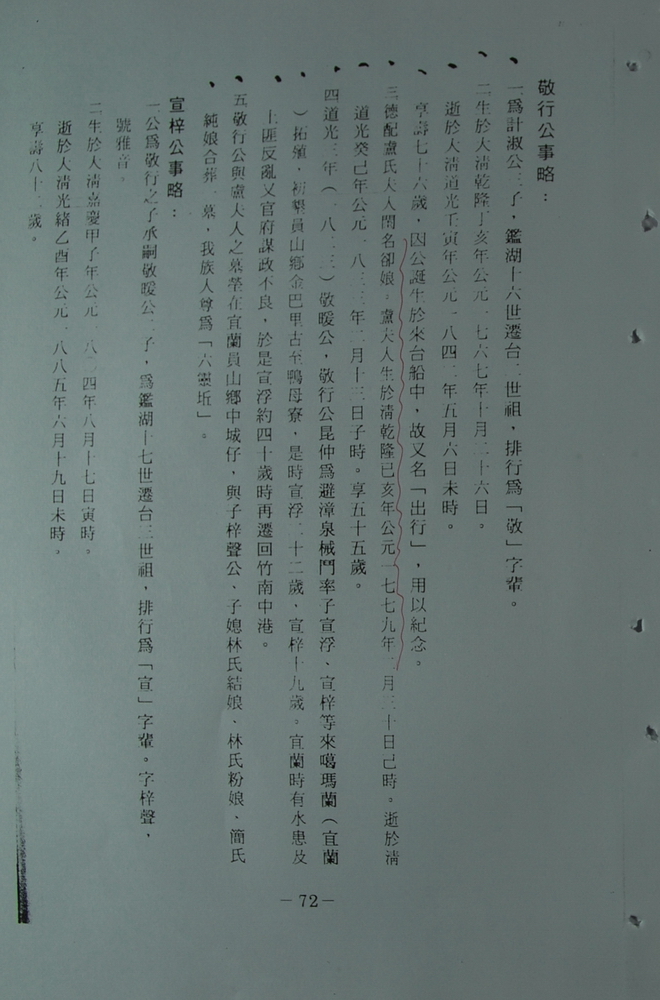 敬行公事略：
一為計淑公子，鑑湖十六世遷台二世祖，排行為「敬」字輩。
二生於大清乾隆丁亥年公元一七六七年十月二十六日。
逝於大清道光壬寅年公元一八四二年五月六日未時。
享壽七十六歲，因公誕生於來台船中，故又名「出行」，用以紀念。
三德配盧氏夫人閨名卻娘。盧夫人生於清乾隆己亥年公元一七七九年月三十日己時。逝於清
道光癸己年公元一八三三年月十三日子時。享五十五歲。
四道光三年（一八二三）敬暖公，敬行公昆仲為避漳泉械鬥率子宣浮、宣梓等來噶瑪蘭（宜蘭
）拓殖，初墾員山鄉金巴里古至鴨母寮，是時宣浮二十二歲、宣梓十九歲。宜蘭時有水患及
土匪反亂又官府謀政不良，於是宣浮約四十歲時再遷回竹南中港。
五敬行公與盧夫人之墓塋在宜蘭員山鄉中城仔，與子梓聲公、子媳林氏結娘、林氏粉娘、簡氏
純娘合葬一墓，我族人尊為「六靈坵」。
宣梓公事略：
一公為敬行之子承嗣敬暖公子，為鑑湖十七世遷台三世祖，排行為「宣」字輩。字梓聲，
號雅音。
二生於大清嘉慶甲子年公元一八〇四年八月十七日寅時。
逝於大清光緒乙酉年公元一八八五年六月十九日未時。
享壽八十二歲。
－72－